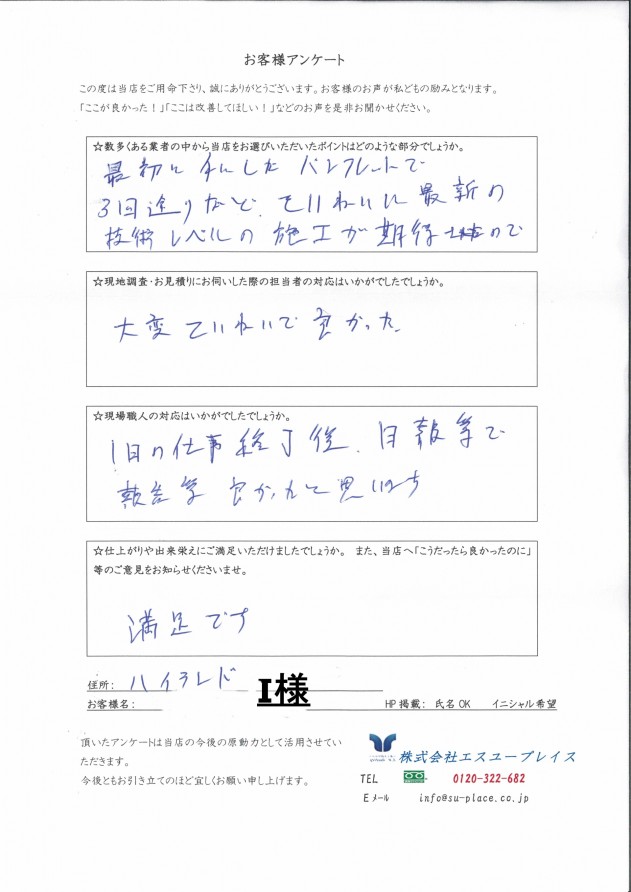 お客様アンケート
この度は当店をご用命下さり、誠にありがとうございます。お客様のお声が私どもの励みとなります。
「ここが良かった!」「ここは改善してほしい!」などのお声を是非お聞かせください。
☆数多くある業者の中から当店をお選びいただいたポイントはどのような部分でしょうか。
最初に手にしたパンフレットで
3回塗りなど、ていねいに最新の
技術レベルの施工が期待 ので
☆現地調査・お見積りにお伺いした際の担当者の対応はいかがでしたでしょうか。
大変ていねいで良かった
☆現場職人の対応はいかがでしたでしょうか。
1日の仕事終了後、日報等で
報告等 良かったと思います
☆仕上がりや出来栄えにご満足いただけましたでしょうか。 また、当店へ「こうだったら良かったのに」
等のご意見をお知らせくださいませ。
満足です
住所: ハイランド
お客様名: I様 HP掲載: 氏名OK イニシャル希望
頂いたアンケートは当店の今後の原動力として活用させてい
ただきます。
今後ともお引き立てのほど宜しくお願い申し上げます。
株式会社エスユープレイス
TEL 0120-322-682
Eメール info@su-place.co.jp